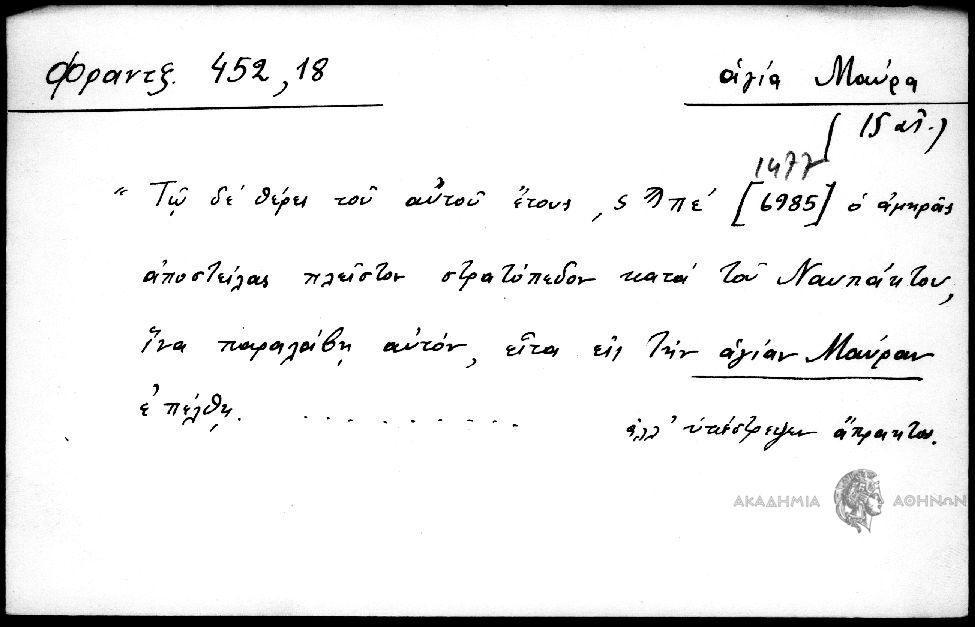 Φραντζ. 452,18
ἁγία Μαύρα
15 αἰ.)
1477
" Τῷ δέ θέρει τοῦ αὐτοῦ ἔτους, ς ϡ πέ [6985] ὁ ἀμηρᾶς
ἀποστείλας πλεῖστον στρατόπεδον κατά τοῦ Ναυπάκτου,
ἵνα παραλάβῃ αὐτόν, εἶτα εἰς τήν ἁγίαν Μαύραν
ἐπέλθῃ. . . . . . . . . . . ἀλλ' ὑπέστρεψεν ἄπρακτον.
ΑΚΑΔΗΜΙΑ ΑΘΗΝΩΝ